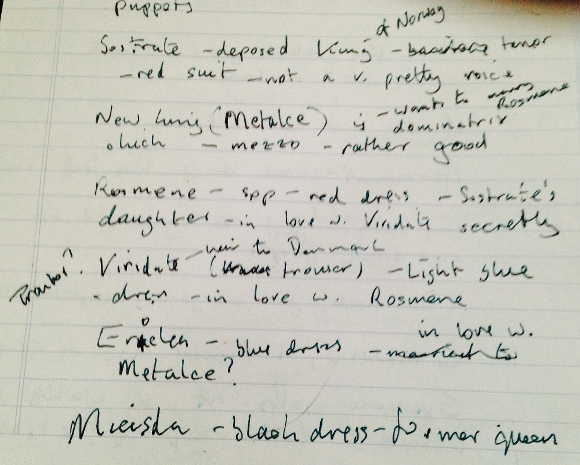 puppets
of Norway
Sostrate - deposed King - baritone tenor
- red suit - not a v. pretty voice
- wants to marry Rosmene
New king (Metalce) is dominatrix
chick - mezzo - rather good
Rosmene - sop - red dress - Sostrate's
daughter - in love w. Viridate secretly
heir to Denmark
Viridate (trouser) - Light blue
dress - in love w. Rosmene
in love w.
- blue dress - married to
Metalce?
- black dress - former queen